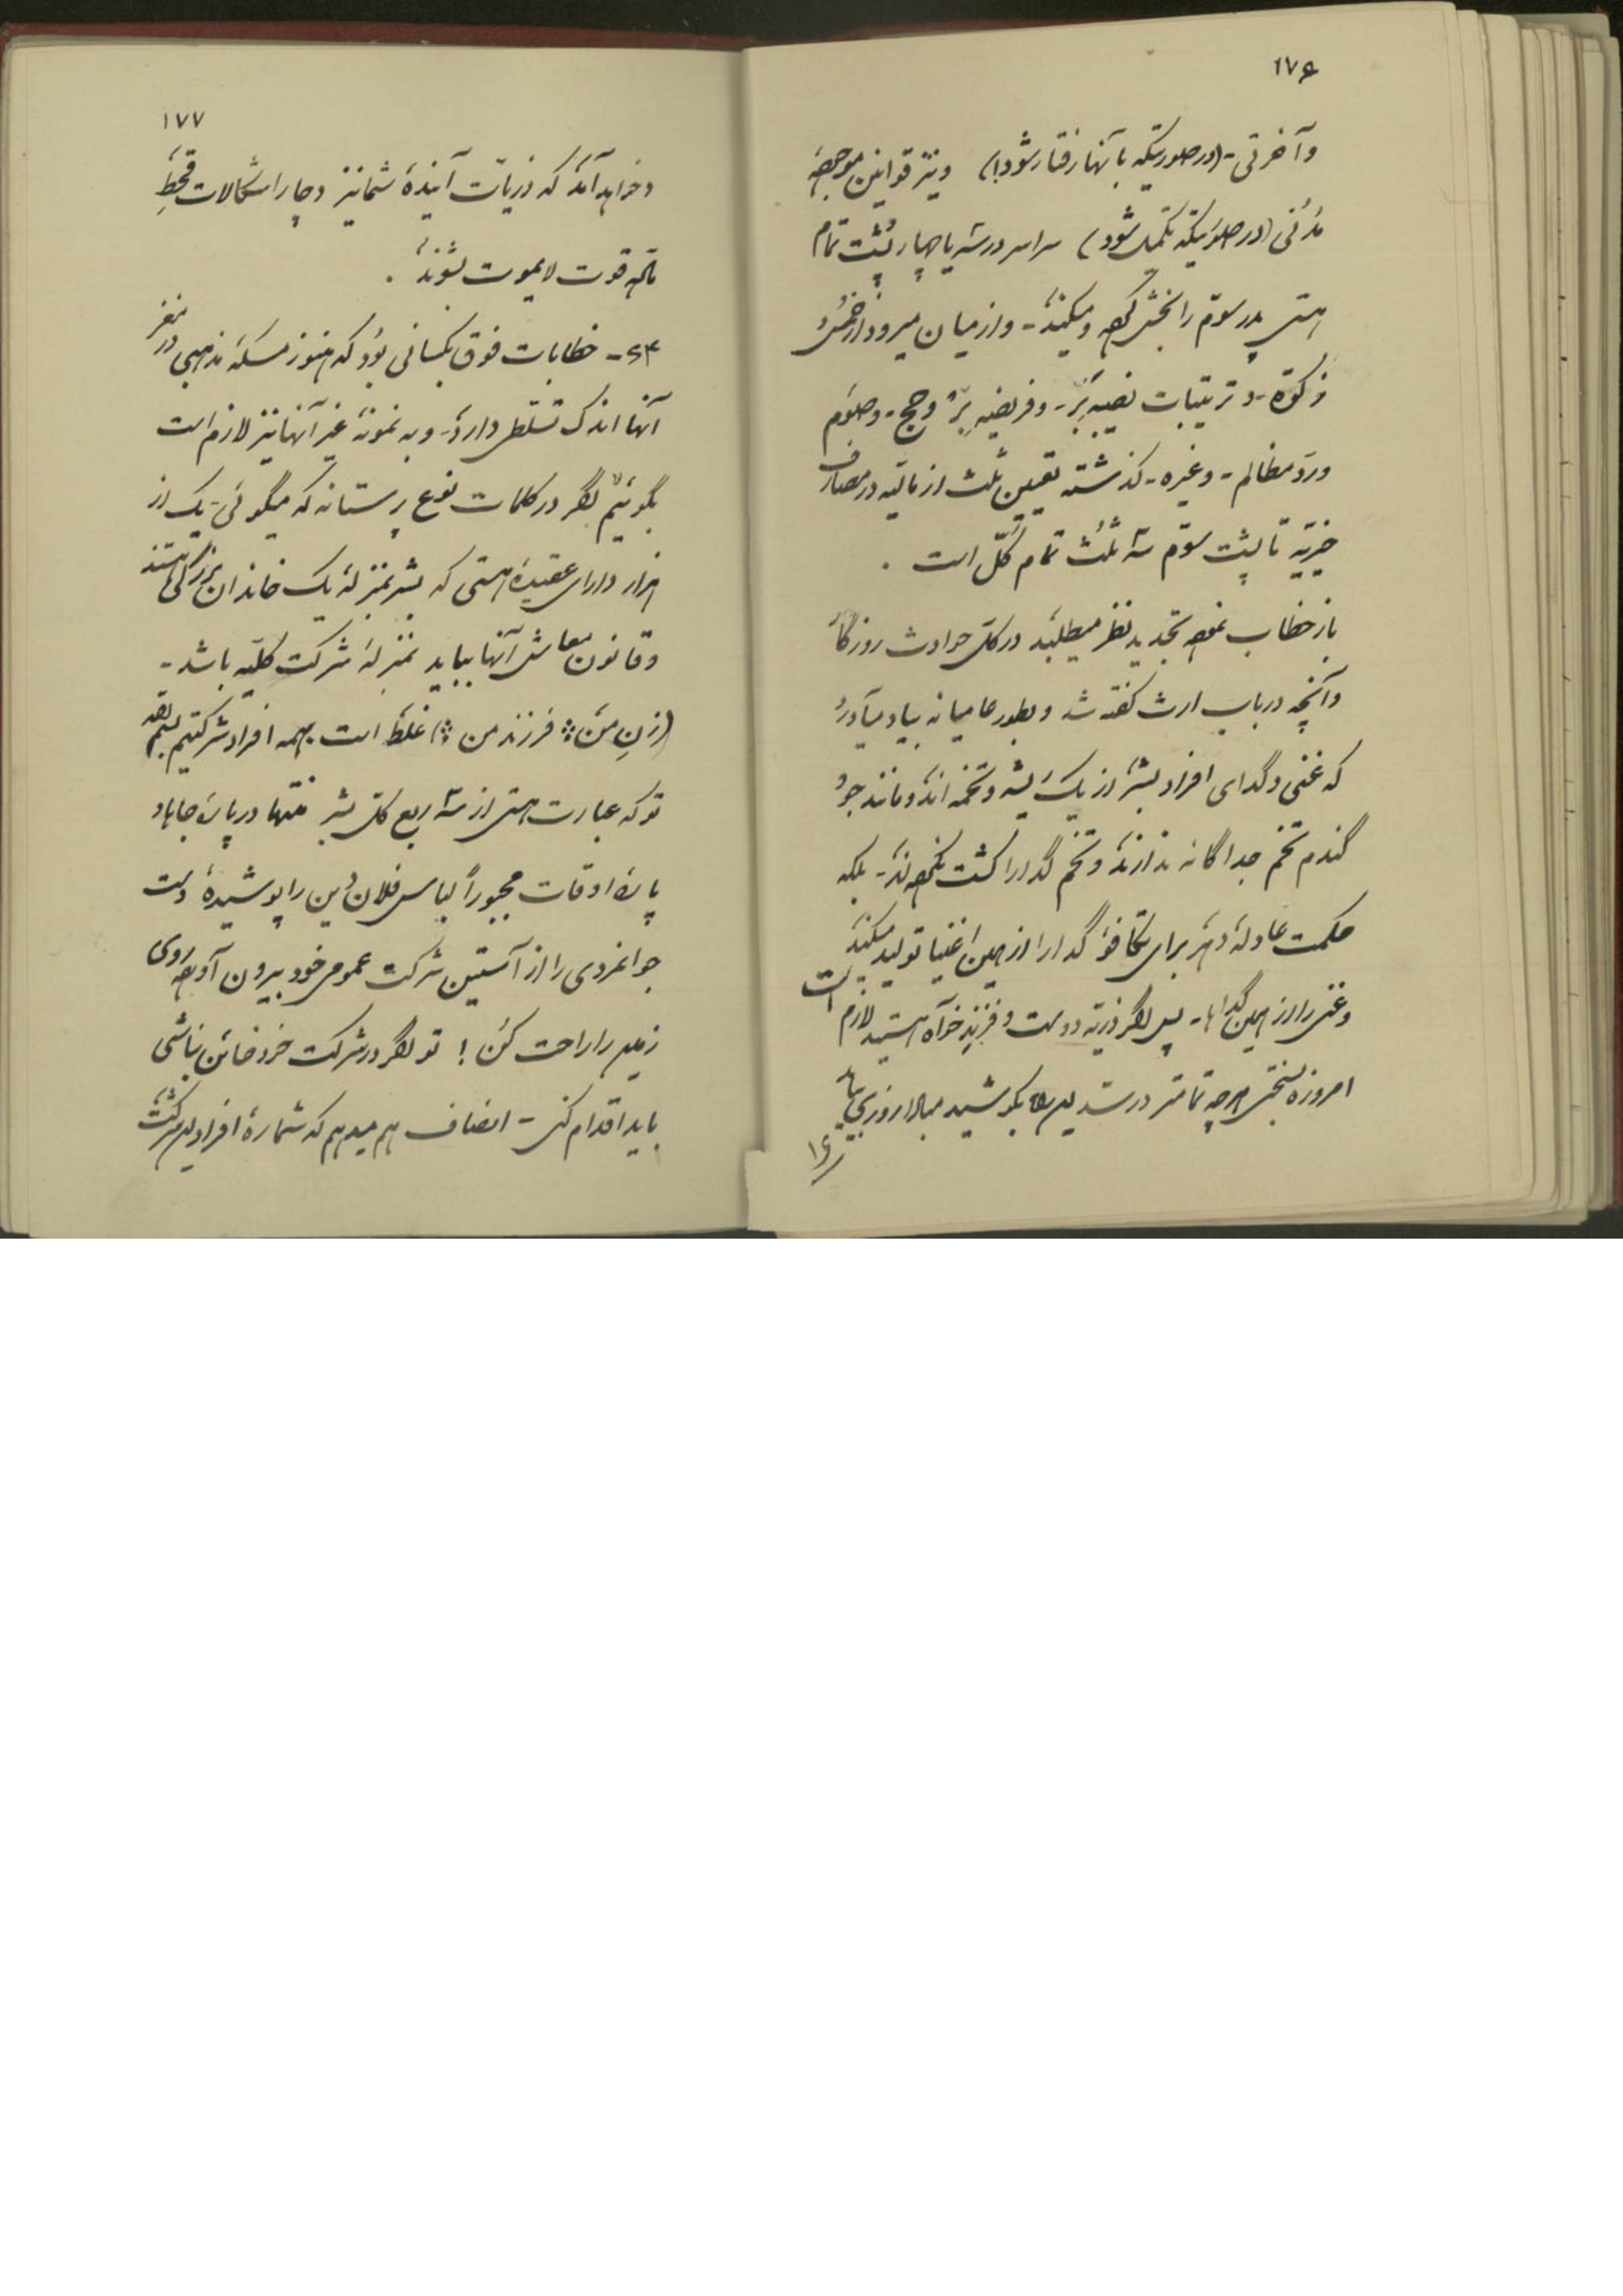 ۱۷۶
وآخرتی - (در صورتیکه با آنها رفتار شود!) ونیز قوانین موجوده
مدنی (در صورتیکه تکمیل شود) سراسر در سه یا چهار پشت تمام
هستی پدر سوم را بخش کرده ومیکند - واز میان میرود از خمس و
زکوة - وترتیبات - وفریضه بر وحج - وصوم
ورد مظالم - وغیره - گذشته تعیین ثلث از مالیه در مصارف
خیریه تا پشت سوم سه ثلث تمام کل است .
باز خطاب نموده تجدید نظر میطلبد در کل حوادث روزگار
وآنچه در باب ارث گفته شد وبطور عامیانه بیاد میآورد
که غنی وگدای افراد بشر از یک ریشه وتخمه اند ومانند جو و
گندم تخم جداگانه ندارند وتخم گدا را کشت نکرده اند - بلکه
حکمت عادله دهر برای تکافؤ گدا را از همین اغنیا تولید میکند
وغنی را از همین گداها - پس اگر ذریه دوست وفرزند خواه هستید لازم است
امروزه بسختی هرچه تمامتر در سد این راه بکوشید مبادا روزی بیاید
۱۷۷
وخواهد آمد که ذریات آینده شما نیز دچار اشکالات قحط
مالیه قوت لایموت بشوند .
۶۴ - خطابات فوق بکسانی بود که هنوز مسکه مذهبی در مغز
آنها اندک تسلطی دارد - وبه نمونه غیر آنها نیز لازم است
بگوئیم اگر در کلمات نوع پرستانه که میگوئی - یک از
هزار دارای عقیده هستی که بشر بمنزله یک خاندان بزرگی هستند
وقانون معاش آنها بباید بمنزله شرکت کلیه باشد -
(زن من فرزند من) غلط است بهمه افراد شرکتیم
تو که عبارت هستی از سه ربع کل بشر منتها در پاره جاها و
پاره اوقات مجبوراً لباس فلان دین را پوشیده دست
جوانمردی را از آستین شرکت عمومی خود بیرون آورده روی
زمین را راحت کن ! تو اگر در شرکت خود خائن نباشی
باید اقدام کنی - انصاف هم میدهم که شماره افراد این شرکت